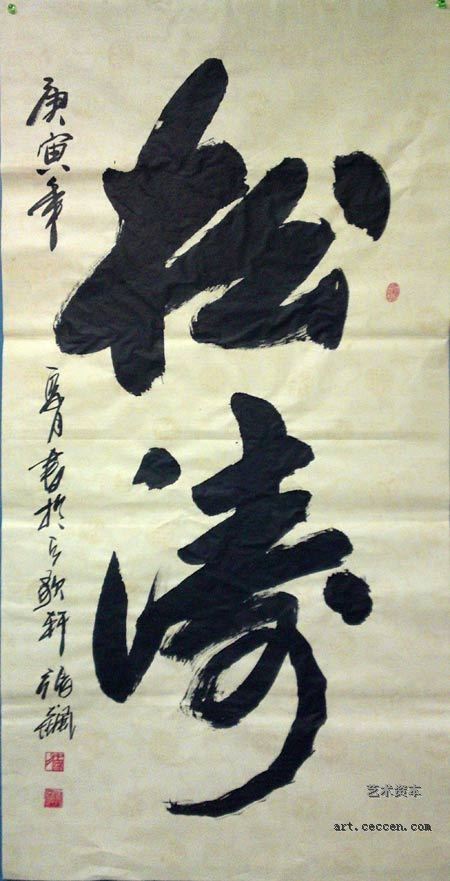 松涛
庚寅年
夏月書於 轩
艺术资本
art.ceccen.com